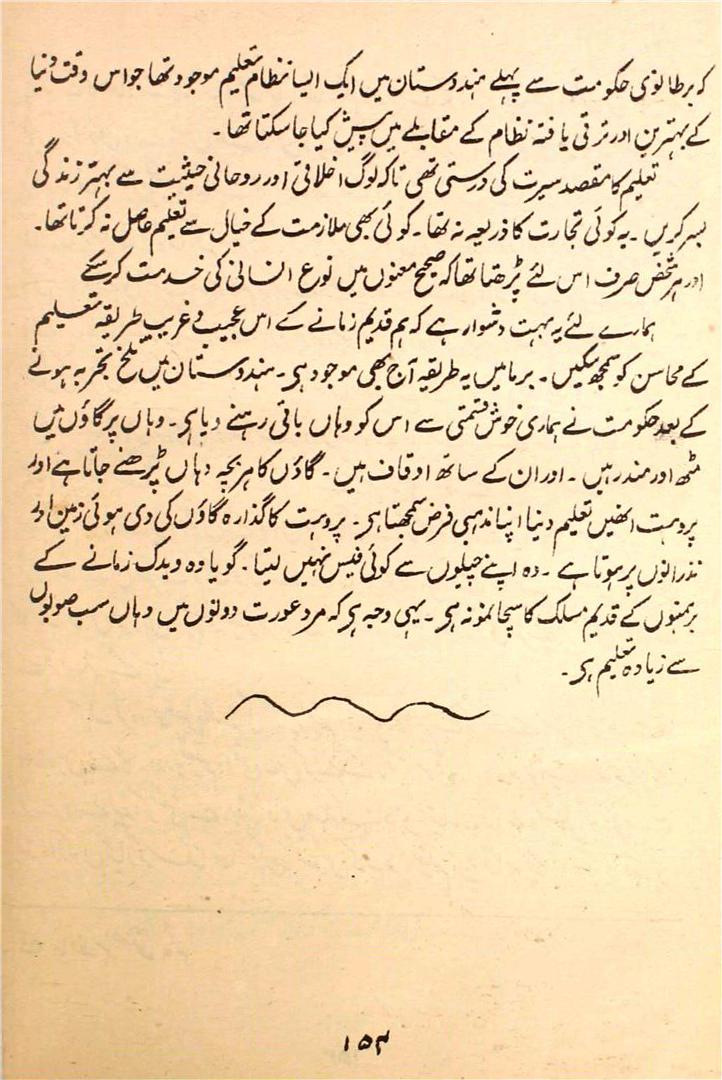 کہ برطانوی حکومت سے پہلے ہندوستان میں ایک ایسا نظام تعلیم موجود تھا جو اس وقت دنیا
کے بہترین اور ترقی یافتہ نظام کے مقابلے میں پیش کیا جا سکتا تھا ۔
تعلیم کا مقصد سیرت کی درستی تھی تاکہ لوگ اخلاقی اور روحانی حیثیت سے بہتر زندگی
بسر کریں ۔ یہ کوئی تجارت کا ذریعہ نہ تھا ۔ کوئی بھی ملازمت کے خیال سے تعلیم حاصل نہ کرتا تھا ۔
اور ہر شخص صرف اس لئے پڑھتا تھا کہ صحیح معنوں میں نوع انسانی کی خدمت کر سکے
ہمارے لئے یہ بہت دشوار ہے کہ ہم قدیم زمانے کے اس عجیب و غریب طریقہ تعلیم
کے محاسن کو سمجھ سکیں ۔ برما میں یہ طریقہ آج بھی موجود ہی ۔ ہندوستان میں تلخ تجربہ ہونے
کے بعد حکومت نے ہماری خوش قسمتی سے اس کو وہاں باقی رہنے دیا ہی ۔ وہاں ہر گاؤں میں
مٹھ اور مندر ہیں ۔ اور ان کے ساتھ اوقاف ہیں ۔ گاؤں کا ہر بچہ وہاں پڑھنے جاتا ہے اور
پروہت انھیں تعلیم دینا اپنا مذہبی فرض سمجھتا ہی ۔ پروہت کا گذارہ گاؤں کی دی ہوئی زمین اور
نذرانوں پر ہوتا ہے ۔ وہ اپنے چیلوں سے کوئی فیس نہیں لیتا ۔ گویا وہ ویدک زمانے کے
برہمنوں کے قدیم مسلک کا سچا نمونہ ہی ۔ یہی وجہ ہی کہ مرد عورت دونوں میں وہاں سب صوبوں
سے زیادہ تعلیم ہی ۔
۱۵۴